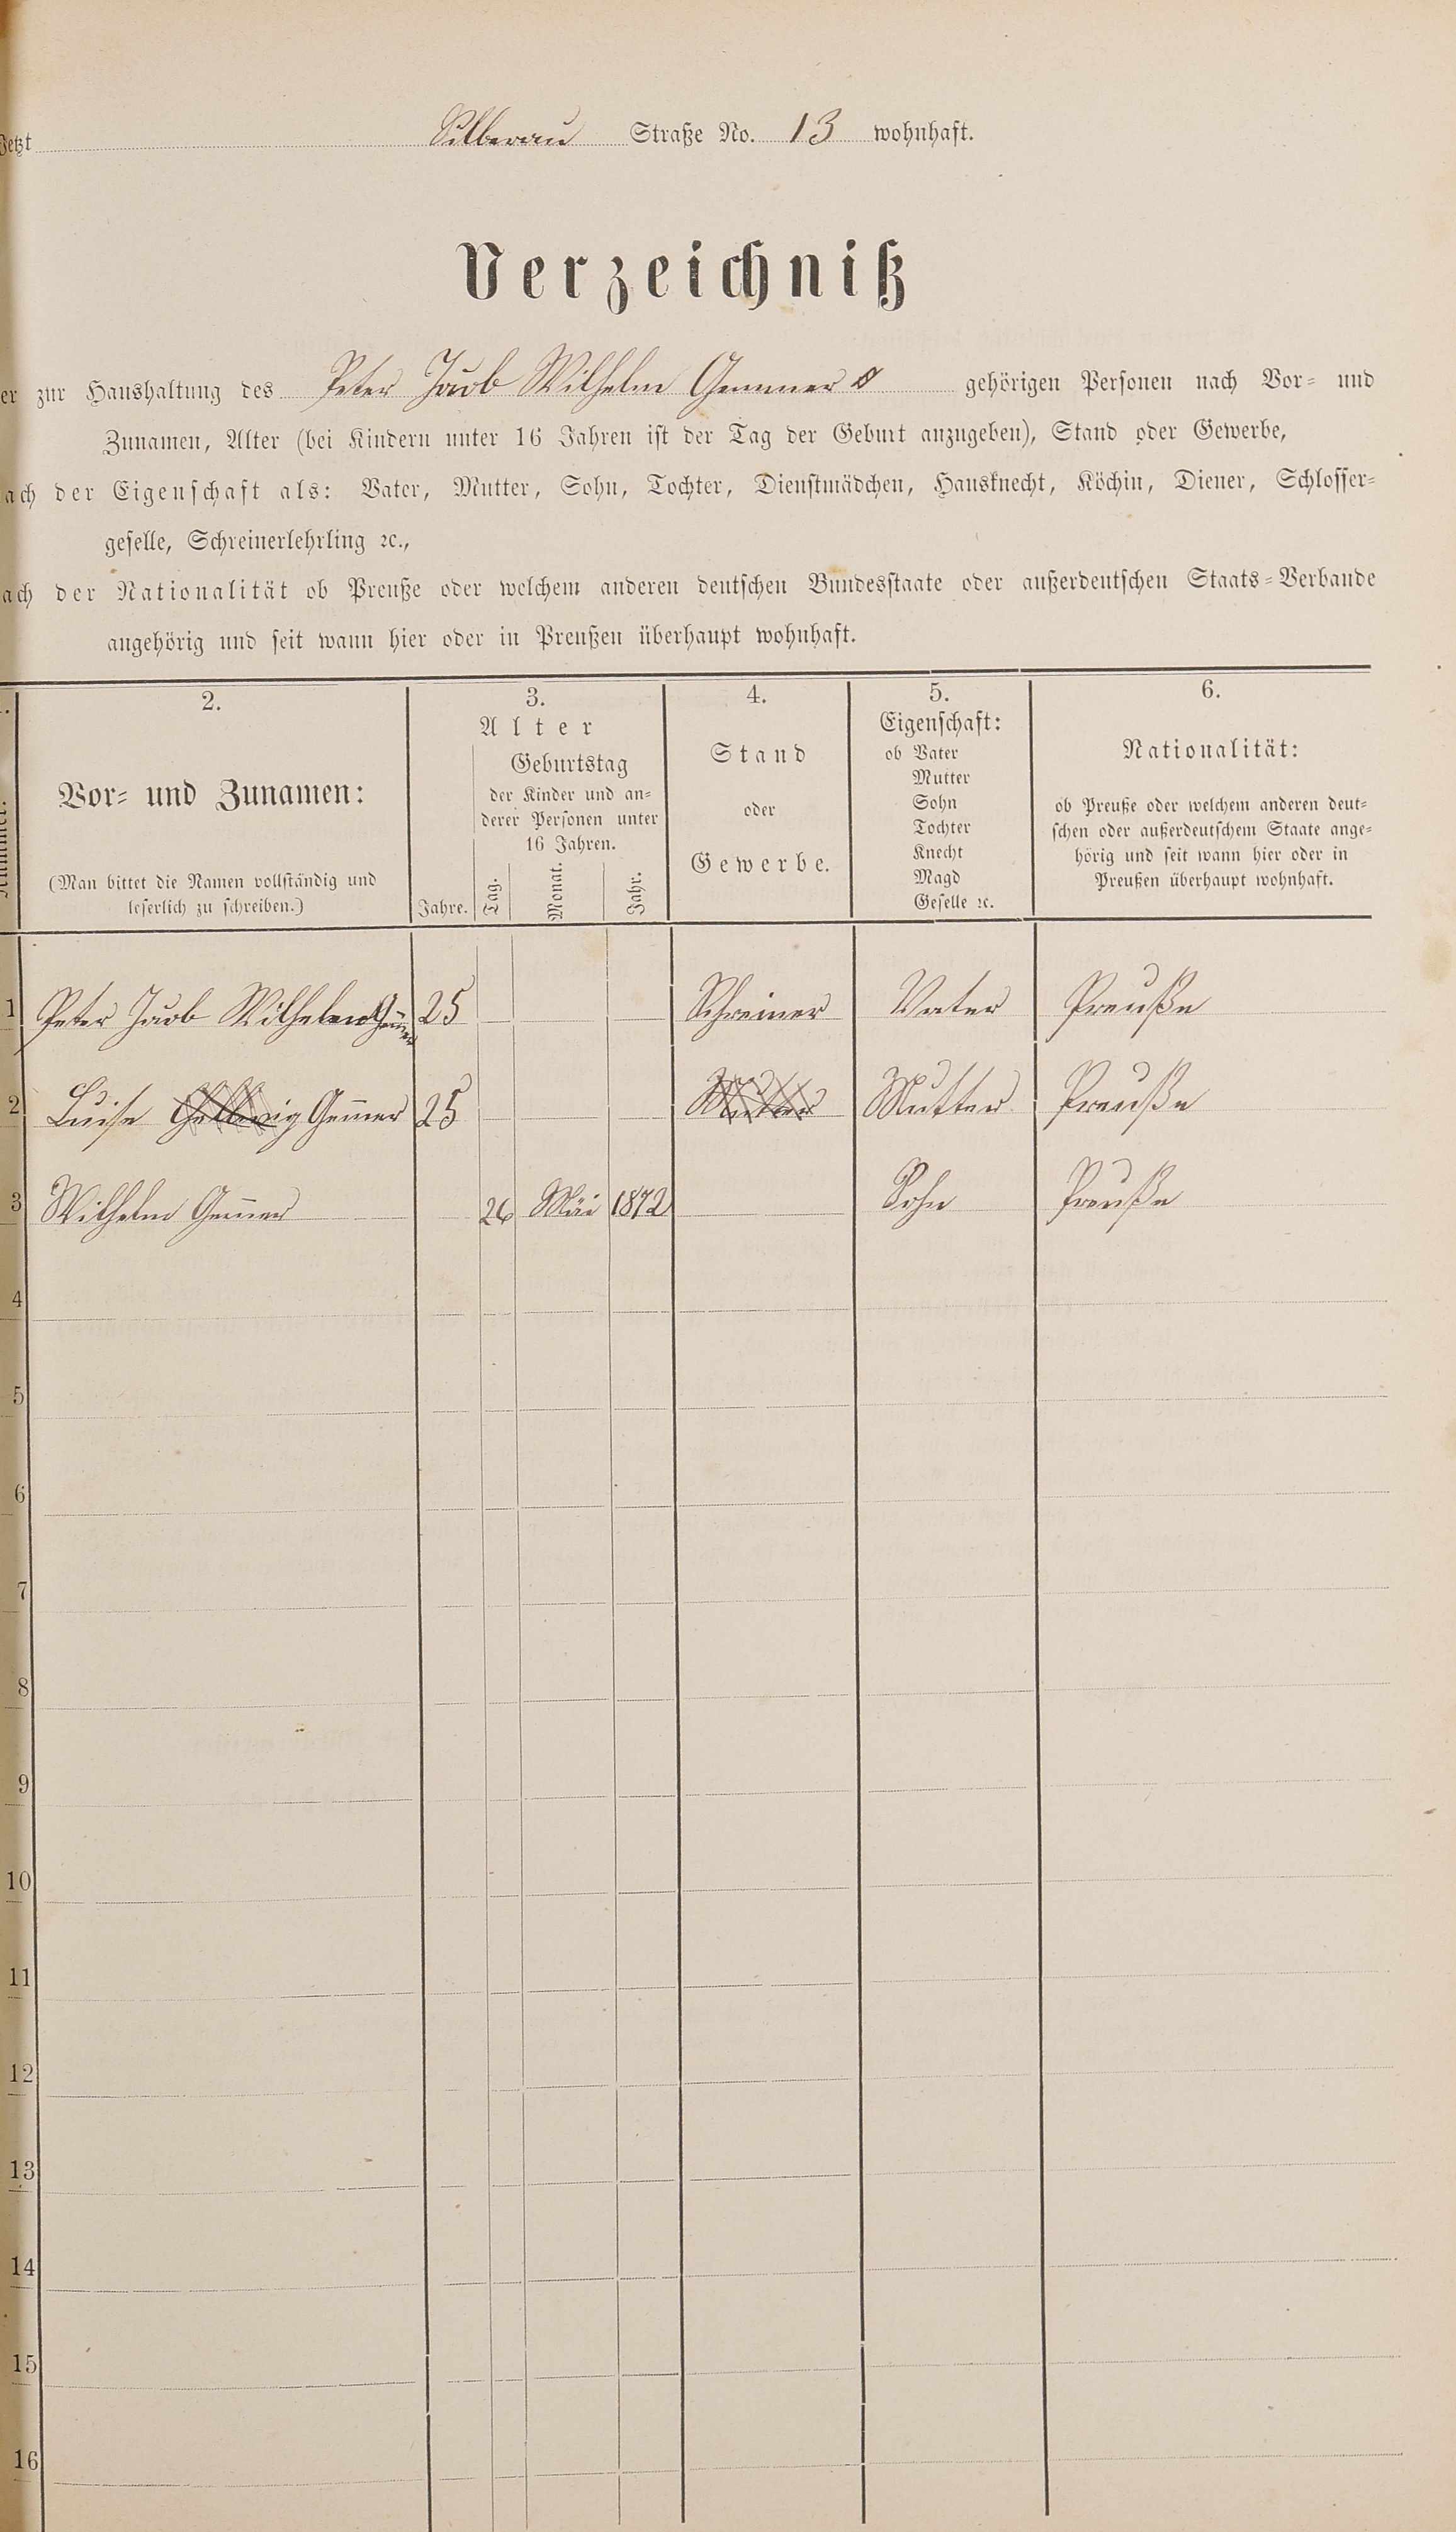 Jetzt Silberau Straße No. 13 wohnhaft.
Verzeichniß
er zur Haushaltung des Peter Jacob Wilhelm Gemmer gehörigen Personen nach Vor- und
Zunamen, Alter (bei Kindern unter 16 Jahren ist der Tag der Geburt anzugeben), Stand oder Gewerbe,
ach der Eigenschaft als: Vater, Mutter, Sohn, Tochter, Dienstmädchen, Hausknecht, Köchin, Diener, Schlosser-
geselle, Schreinerlehrling ꝛc.,
ach der Nationalität ob Preuße oder welchem anderen deutschen Bundesstaate oder außerdeutschen Staats-Verbande
angehörig und seit wann hier oder in Preußen überhaupt wohnhaft.
2.
Vor- und Zunamen:
(Man bittet die Namen vollständig und
leserlich zu schreiben.)
3.
Alter
Jahre.
Geburtstag
der Kinder und an-
derer Personen unter
16 Jahren.
Tag. Monat. Jahr.
4.
Stand
oder
Gewerbe.
5.
Eigenschaft:
ob Vater
Mutter
Sohn
Tochter
Knecht
Magd
Geselle ꝛc.
6.
Nationalität:
ob Preuße oder welchem anderen deut-
schen oder außerdeutschem Staate ange-
hörig und seit wann hier oder in
Preußen überhaupt wohnhaft.
1 Peter Jacob Wilhelm Gem̄er 25 Schreiner Vater Preuße
2 Luise Gem̄er 25 Mutter Mutter Preuße
3 Wilhelm Gem̄er 26 Mäi 1872 Sohn Preuße
4
5
6
7
8
9
10
11
12
13
14
15
16